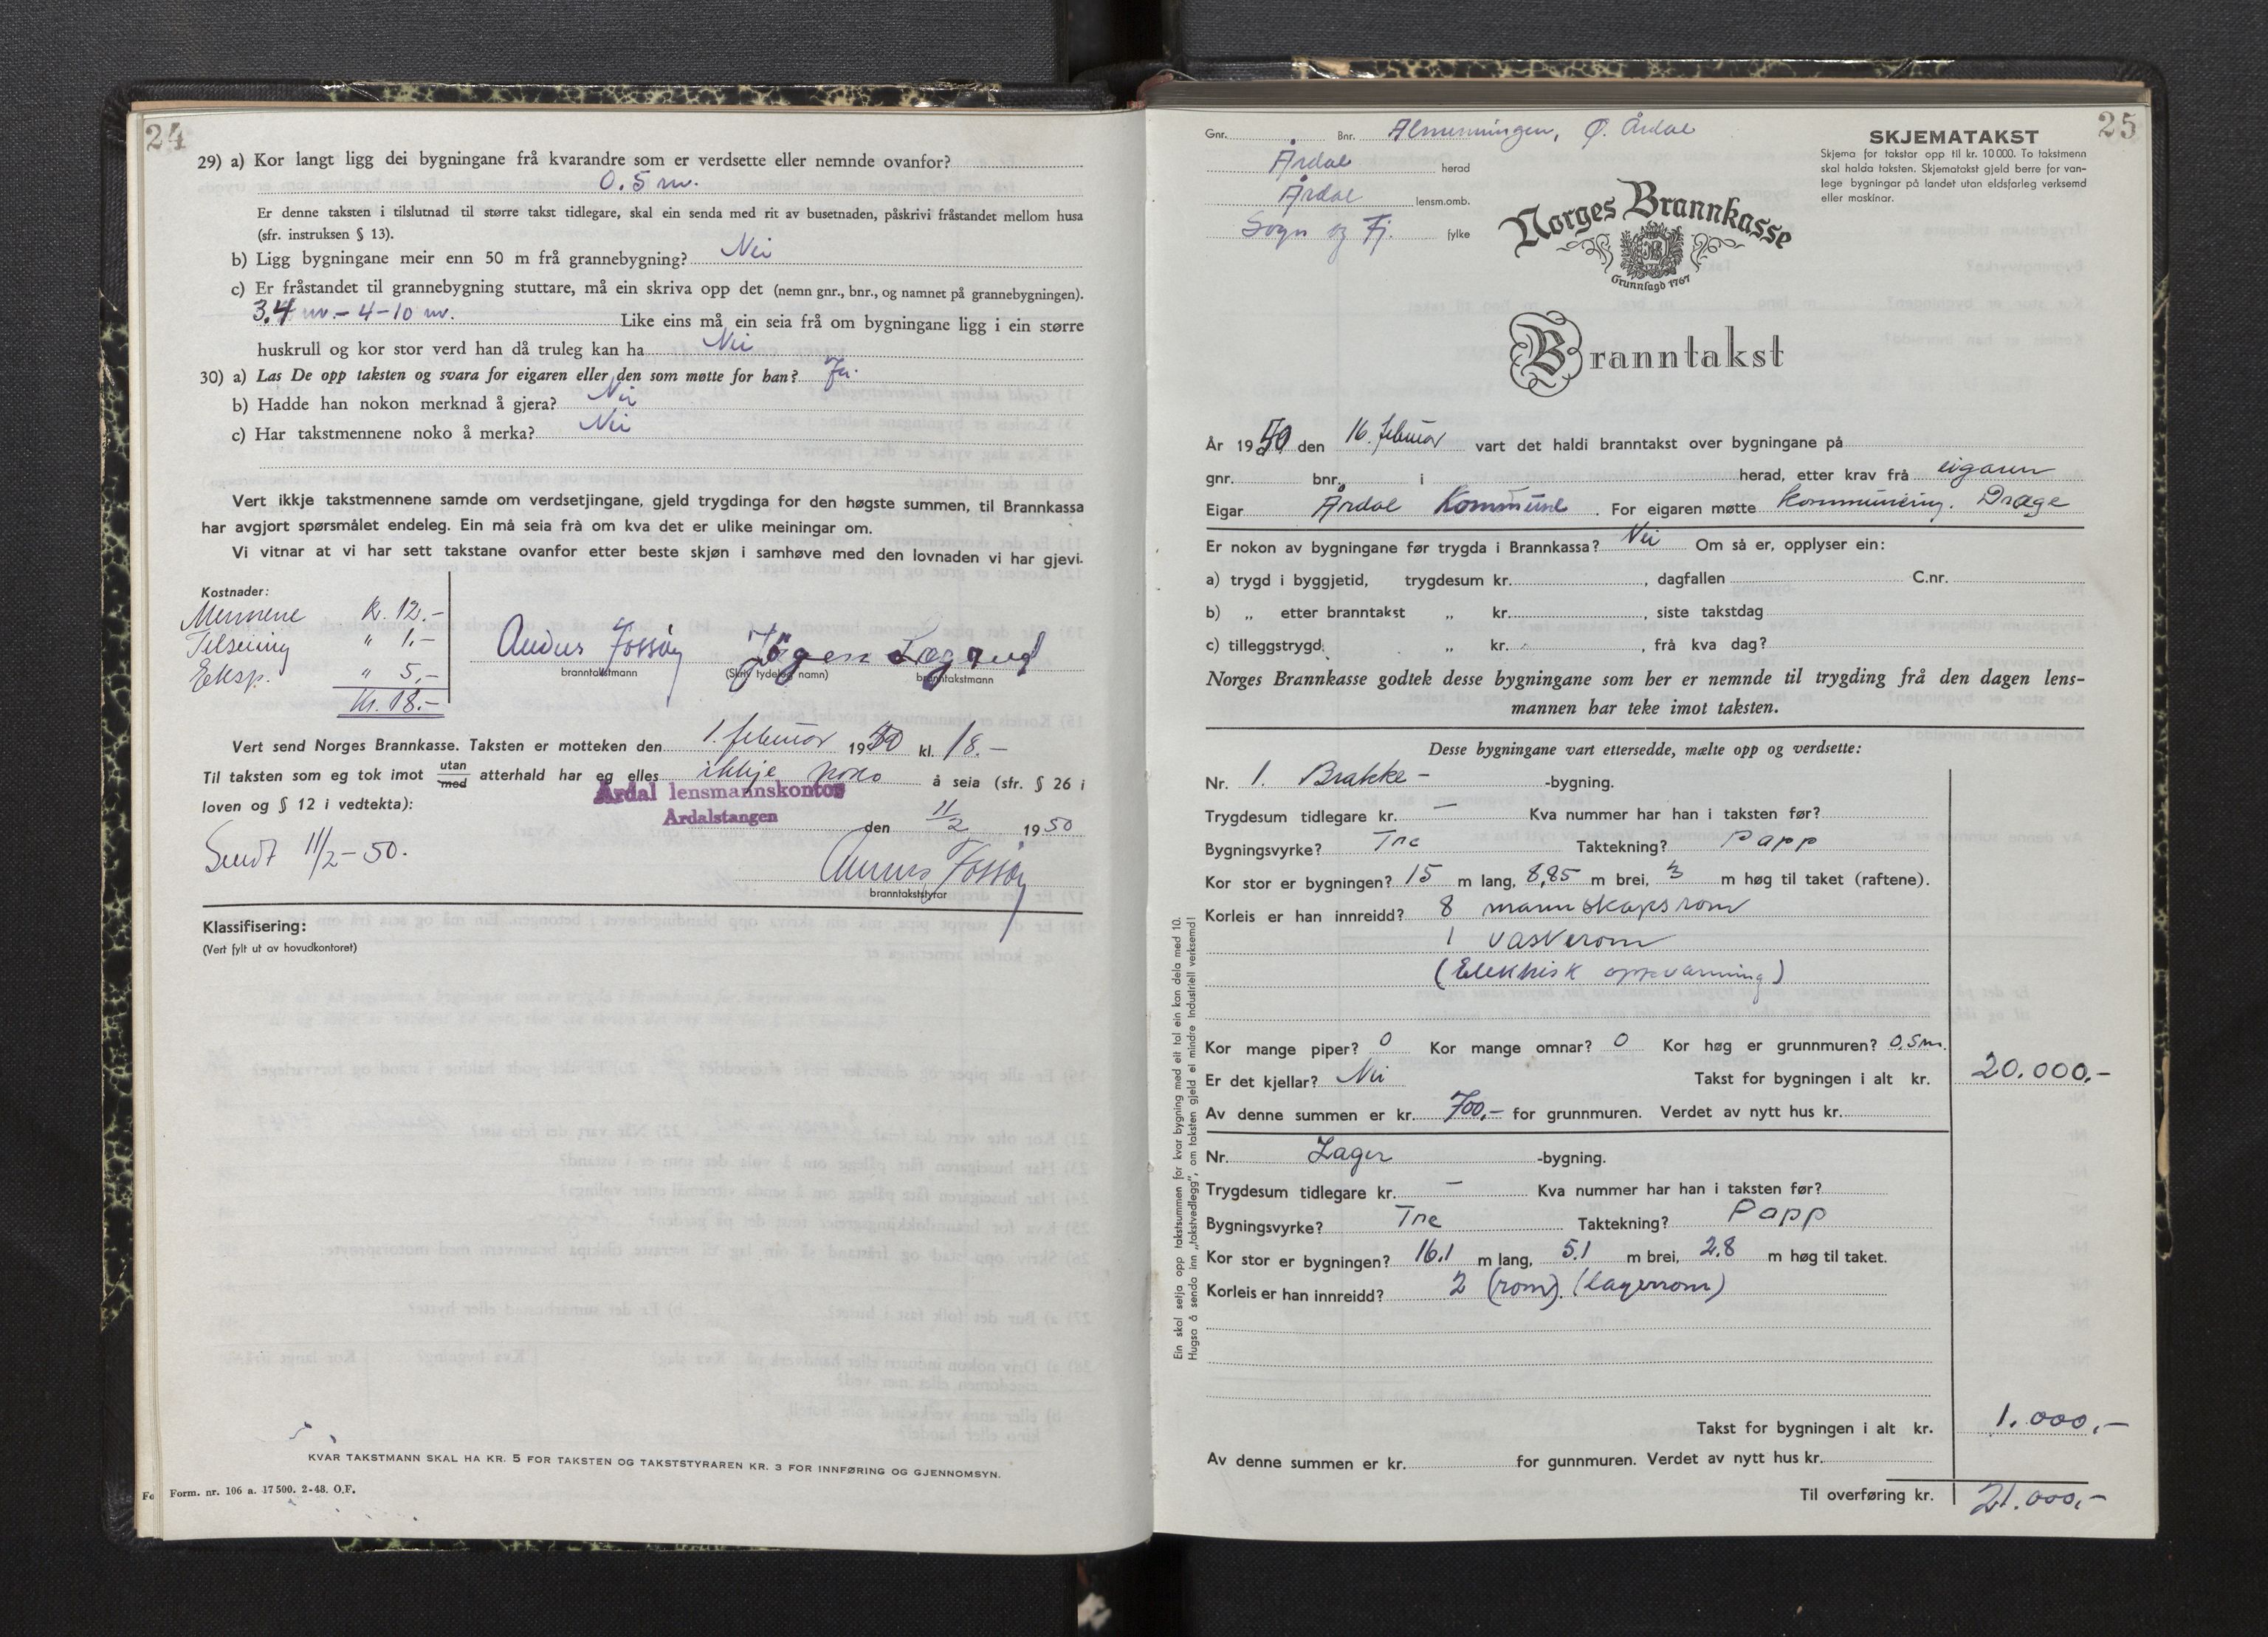 24
29) a) Kor langt ligg dei bygningane frå kvarandre som er verdsette eller nemnde ovanfor?
0.5 m.
Er denne taksten i tilslutnad til større takst tidlegare, skal ein senda med rit av busetnaden, påskrivi fråstandet mellom husa
(sfr. instruksen § 13).
b) Ligg bygningane meir enn 50 m frå grannebygning? Nei
c) Er fråstandet til grannebygning stuttare, må ein skriva opp det (nemn gnr., bnr., og namnet på grannebygningen).
3.4 m. - 4-10 m. Like eins må ein seia frå om bygningane ligg i ein større
huskrull og kor stor verd han då truleg kan ha Nei
30) a) Las De opp taksten og svara for eigaren eller den som møtte for han? Ja.
b) Hadde han nokon merknad å gjera? Nei
c) Har takstmennene noko å merka? Nei
Vert ikkje takstmennene samde om verdsetjingane, gjeld trygdinga for den høgste summen, til Brannkassa
har avgjort spørsmålet endeleg. Ein må seia frå om kva det er ulike meiningar om.
Vi vitnar at vi har sett takstane ovanfor etter beste skjøn i samhøve med den lovnaden vi har gjevi.
Kostnader:
Mennene k. 12.-
" 1,-
Eksp. " 5,-
Kr. 18.-
Jögen Lægreid
branntakstmann (Skriv tydeleg namn) branntakstmann
Vert send Norges Brannkasse. Taksten er motteken den 1. februar 1950 kl. 18.-
Til taksten som eg tok imot utan/med atterhald har eg elles ikkje noko å seia (sfr. § 26 i
loven og § 12 i vedtekta):
Årdal lensmannskontor
Årdalstangen
den 11/2 1950
Sendt 11/2-50.
branntakststyrar
Klassifisering:
(Vert fylt ut av hovudkontoret)
KVAR TAKSTMANN SKAL HA KR. 5 FOR TAKSTEN OG TAKSTSTYRAREN KR. 3 FOR INNFØRING OG GJENNOMSYN.
Form. nr. 106 a. 17 500. 2-48. O.F.
25
Gnr. Bnr. Almenningen, Ø. Årdal
Årdal herad
Årdal lensm.omb.
Sogn og Fj. fylke
SKJEMATAKST
Skjema for takstar opp til kr. 10 000. To takstmenn
skal halda taksten. Skjematakst gjeld berre for van-
lege bygningar på landet utan eldsfarleg verksemd
eller maskinar.
Norges Brannkasse
Grunnlagd 1767
Branntakst
År 1950 den 16. februar vart det haldi branntakst over bygningane på
gnr. bnr. i herad, etter krav frå eigaren
Eigar Årdal Kommune. For eigaren møtte kommuneing. Dræge
Er nokon av bygningane før trygda i Brannkassa? Nei Om så er, opplyser ein:
a) trygd i byggjetid, trygdesum kr. , dagfallen C.nr.
b) „ etter branntakst „ kr. , siste takstdag
c) tilleggstrygd „ kr. , frå kva dag?
Norges Brannkasse godtek desse bygningane som her er nemnde til trygding frå den dagen lens-
mannen har teke imot taksten.
Desse bygningane vart ettersedde, mælte opp og verdsette:
Nr. 1. Brakke - -bygning.
Trygdesum tidlegare kr. — Kva nummer har han i taksten før?
Bygningsvyrke? Tre Taktekning? Papp
Kor stor er bygningen? 15 m lang, 8,85 m brei, 3 m høg til taket (raftene).
Korleis er han innreidd? 8 mannskapsrom
1 vaskerom
(Elektrisk oppvarming)
Kor mange piper? 0 Kor mange omnar? 0 Kor høg er grunnmuren? 0,5 m.
Er det kjellar? Nei Takst for bygningen i alt kr. 20.000,-
Av denne summen er kr. 700,- for grunnmuren. Verdet av nytt hus kr.
Nr. Lager -bygning.
Trygdesum tidlegare kr. — Kva nummer har han i taksten før?
Bygningsvyrke? Tre Taktekning? Papp
Kor stor er bygningen? 16.1 m lang, 5.1 m brei, 2.8 m høg til taket.
Korleis er han innreidd? 2 (rom). (lagerrom)
Takst for bygningen i alt kr. 1.000,-
Av denne summen er kr. for gunnmuren. Verdet av nytt hus kr.
Til overføring kr. 21.000,-
Ein skal setja opp takstsummen for kvar bygning med eit tal ein kan dela med 10.
Hugsa å senda inn „takstvedlegg", om taksten gjeld ei mindre industriell verksemd!